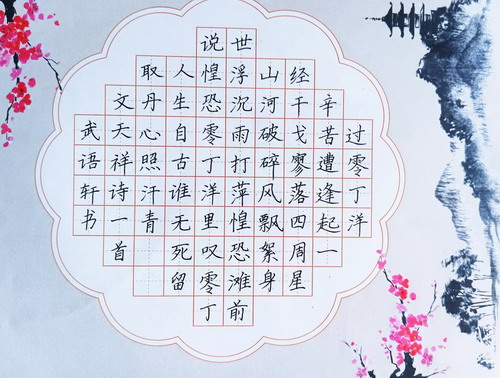 过零丁洋
辛苦遭逢起一
经干戈廖落四周星
山河破碎风飘絮身
世浮沉雨打萍惶恐滩前
说惶恐零丁洋里叹零丁
人生自古谁无死留
取丹心照汗青
文天祥诗一首
武语轩书